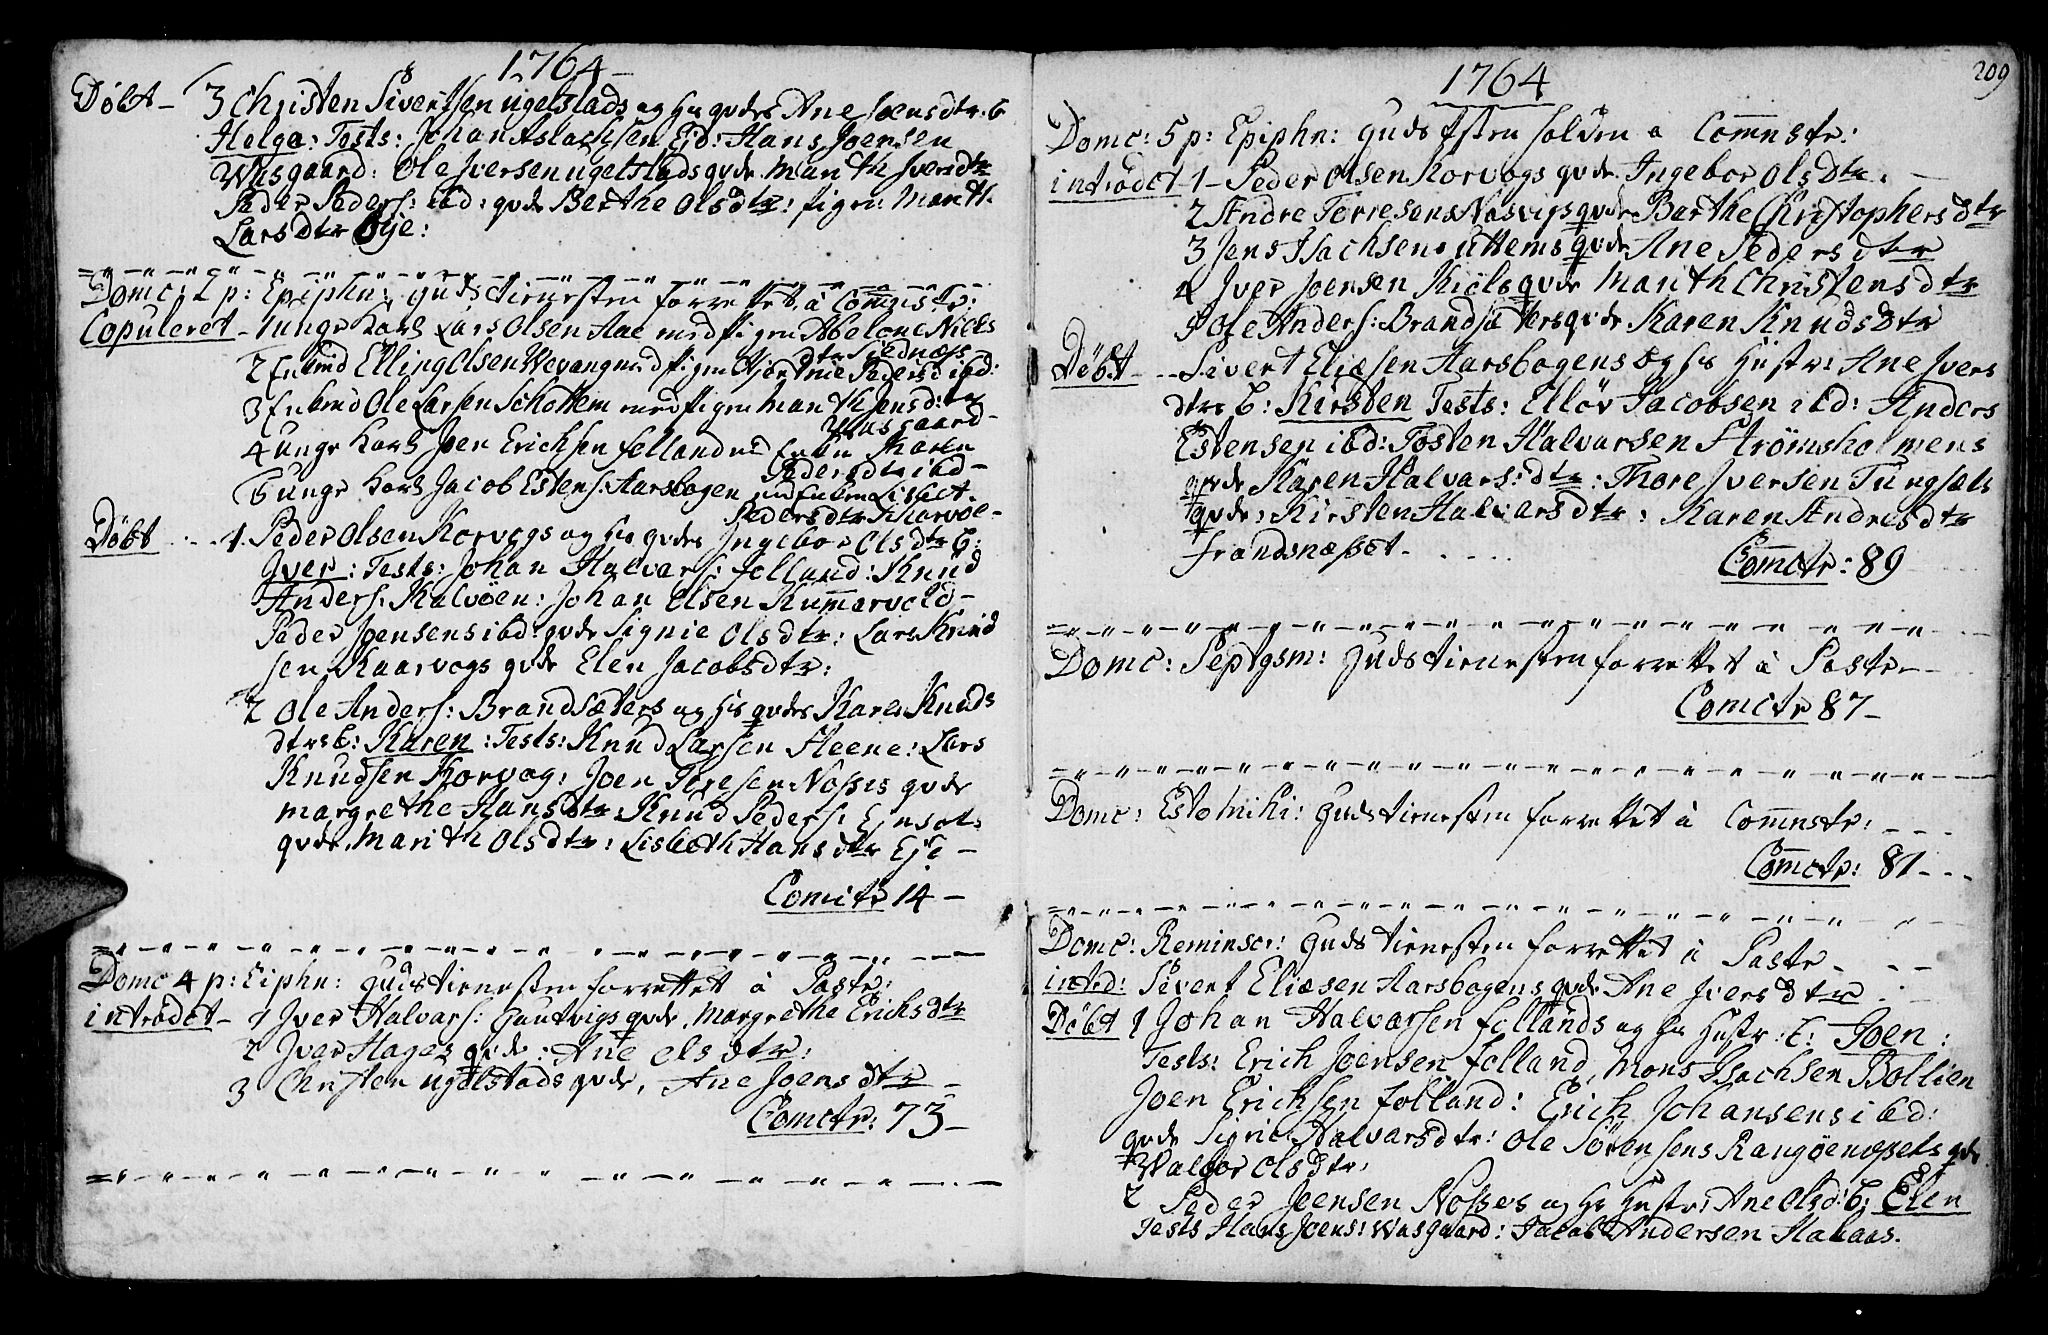 1764
Døbt – 3 Christen Sivertsen ugelstads og hs qvdes Ane Joensdtr: b
Helga: Tests: Johan Aslachsen Eid: Hans Joensen
Wasgaard: Ole Iversen ugelstads qvde Marith Iversdtr
Peder Peders: ibd: qvde Berthe Olsdtr: pigen Marith
Larsdtr Øje:
Domc: 2 p: Epiphn: gudstienesten forrettet à Comnstr:
Copuleret – unge karl Lars Olsen Aae med pigen Abelone Niels
dtr Stednæss
2 Enkmd Elling Olsen Wevang med pigen Pedersd ibd:
3 Enkmd Ole Larsen Schottem med pigen Marith Jensd:tr
Wasgaard –
4 unge karl Joen Erichsen folland md Enken Karen
Pedersdtr ibd –
5 unge karl Jacob Estens: Aarsbogen md Enken Lisbet
Pedersdtr
Døbt 1. Peder Olsen Korvogs og hs qvdes Ingebor Olsdtr b:
Iver: Tests: Johan Halvars: folland: Knud
Anders: Kalvøen: Johan Olsen Kummervold –
Peder Joensens ibd: qvde Signie Olsdtr: Lars Knud
sen Kaarvogs qvde Elen Jacobsdtr:
2 Ole Anders: Brandsæters og hs qvdes Karen Knuds
dtrs b: Karen: Tests: Knud Larsen Steene: Lars
Knudsen Korvog: Joen Toresen Nossis qvde
margrethe Hansdtr Knud Peders:
qvde Marith Olsdtr: Lisbeth Hansdtr Eje –
Comctr 14 –
Domc 4 p: Eiphn: gudstienesten forrettet à Pastr:
introdct – 1 Iver Halvars: Hautvigs qvde. Margrethe Erichsdtr
2 Iver Hages qvde: Ane Olsdtr:
3 Christen ugelstads qvde, Ane Joensdtr –
Comctr: 73 –
209
1764
Domc: 5 p: Epiphn: gudstisten holden a Comnstr:
introdct – 1 – Peder Olsen Korvogs qvde Ingebor Olsdtr: –
2 Andre Torresens Nosvigs qvde Barthe Christophersdtr
3 Jens Isachsens uttems qvde Ane Pedersdtr
4 Iver Joensen Kiøls qvde Marith Christensdtr
5 Ole Anders: Brandsæters qvde Karen Knudsdtr
Døbt – Sivert Eliæsen Aarsbogens og hs Hustr: Ane Ivers
dtrs b: Kirsten Tests: Elløv Jacobsen ibd: Anders
Estensen ibd: Tosten Halvarsen Strømsholmens
qvde Karen Halvars:dtr: Thore Iversen Tungsæts
qvde: Kirsten Halvarsdtr: Karen Andresdtr
frandsnæsset.
Comctr: 89
Domc: Septgsm: gudstienesten forrettet à Pastr –
Comctr 87 –
Domc: Esto mihi: gudstienesten forrettet à Comnstr:
Comctr: 81
Domc: Reminscr: gudstienesten forrettet à Pastr –
introd: Sivert Eliæsen Aarsbogens qvde Ane Iversdtr
Døbt 1 Johan Halvarsen follands og hs Hustr: b: Joen:
Tests: Erich Joensen folland, Mons Isachsen Bollien
Joen Erichsen folland: Erich Johansens ibd:
qvde Sigrie Halvarsdtr: Ole Sørensens qvde
Walbor Olsdtr,
2 Peder Joensen Nosses og hs Hustr: Ane Olsd: b: Elen
Tests Hans Joens: Wasgaard: Jacob Andersen Hahaas.